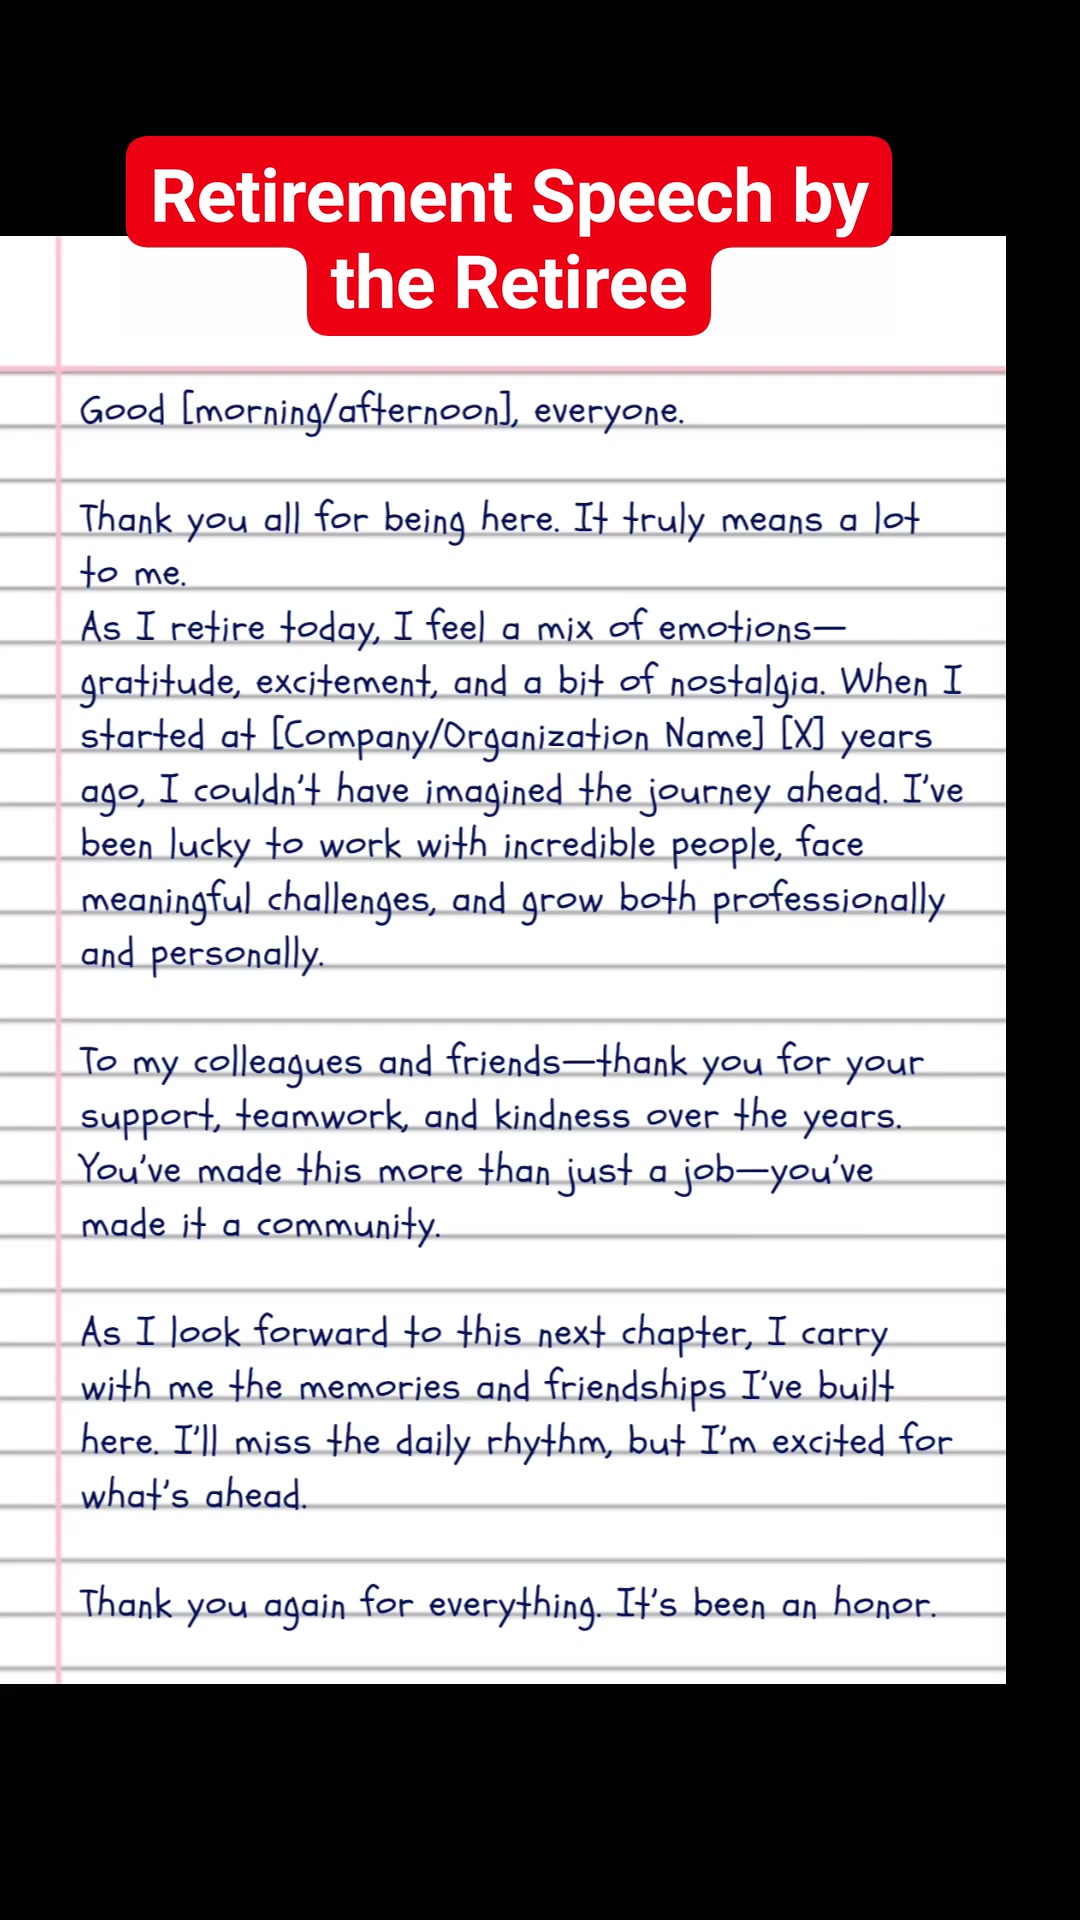 Retirement Speech by
the Retiree
Good [morning/afternoon], everyone.
Thank you all for being here. It truly means a lot
to me.
As I retire today, I feel a mix of emotions—
gratitude, excitement, and a bit of nostalgia. When I
started at [Company/Organization Name] [X] years
ago, I couldn't have imagined the journey ahead. I've
been lucky to work with incredible people, face
meaningful challenges, and grow both professionally
and personally.
To my colleagues and friends—thank you for your
support, teamwork, and kindness over the years.
You've made this more than just a job—you've
made it a community.
As I look forward to this next chapter, I carry
with me the memories and friendships I've built
here. I'll miss the daily rhythm, but I'm excited for
what's ahead.
Thank you again for everything. It's been an honor.